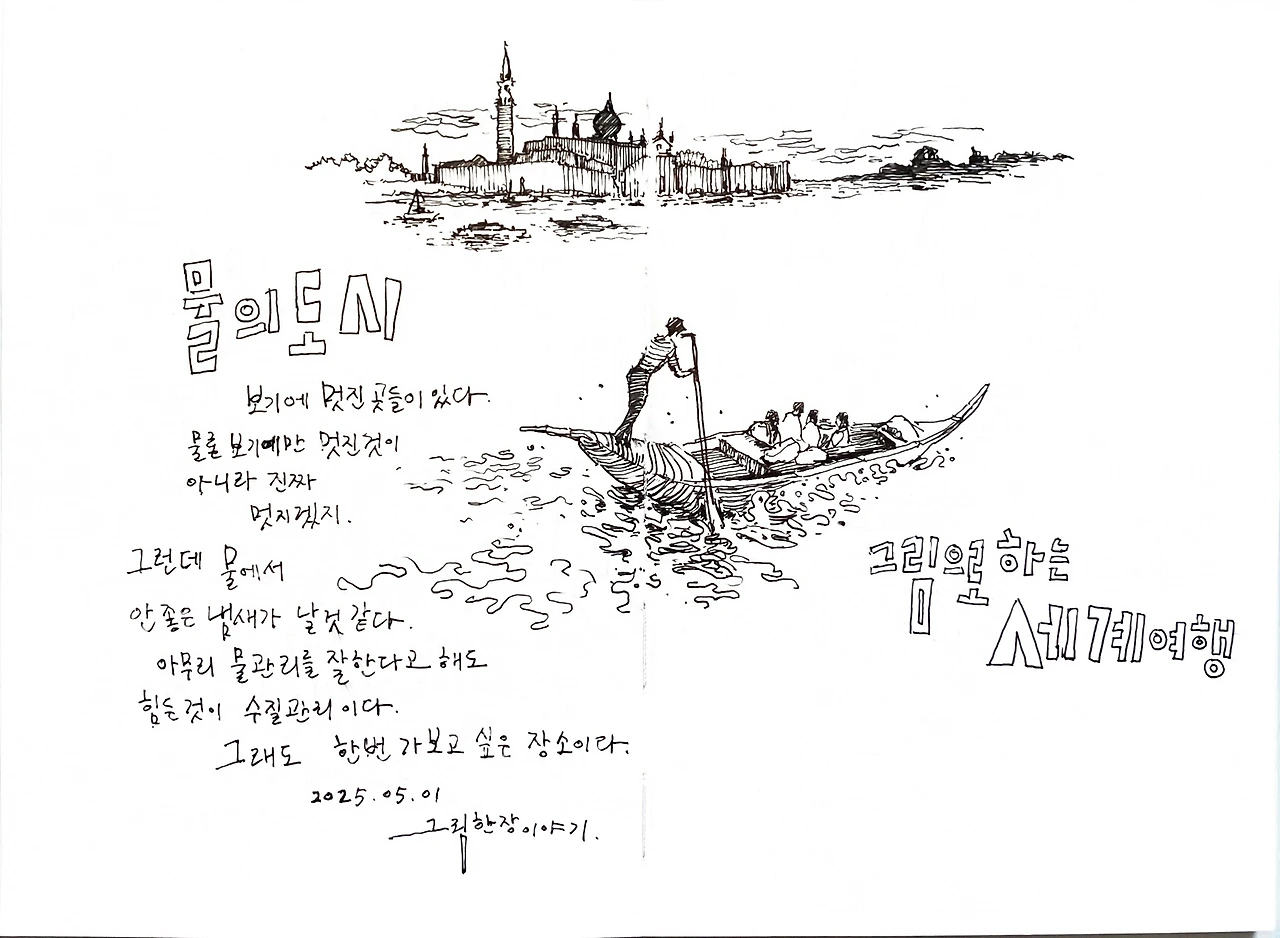 물의도시
보기에 멋진 곳들이 있다.
물론 보기에만 멋진것이
아니라 진짜
멋지겠지.
그런데 물에서
안좋은 냄새가 날것 같다.
아무리 물관리를 잘한다고 해도
힘든것이 수질관리이다.
그래도 한번 가보고 싶은 장소이다.
2025.05.01
그림한장이야기.
그림으로 하는
세계여행